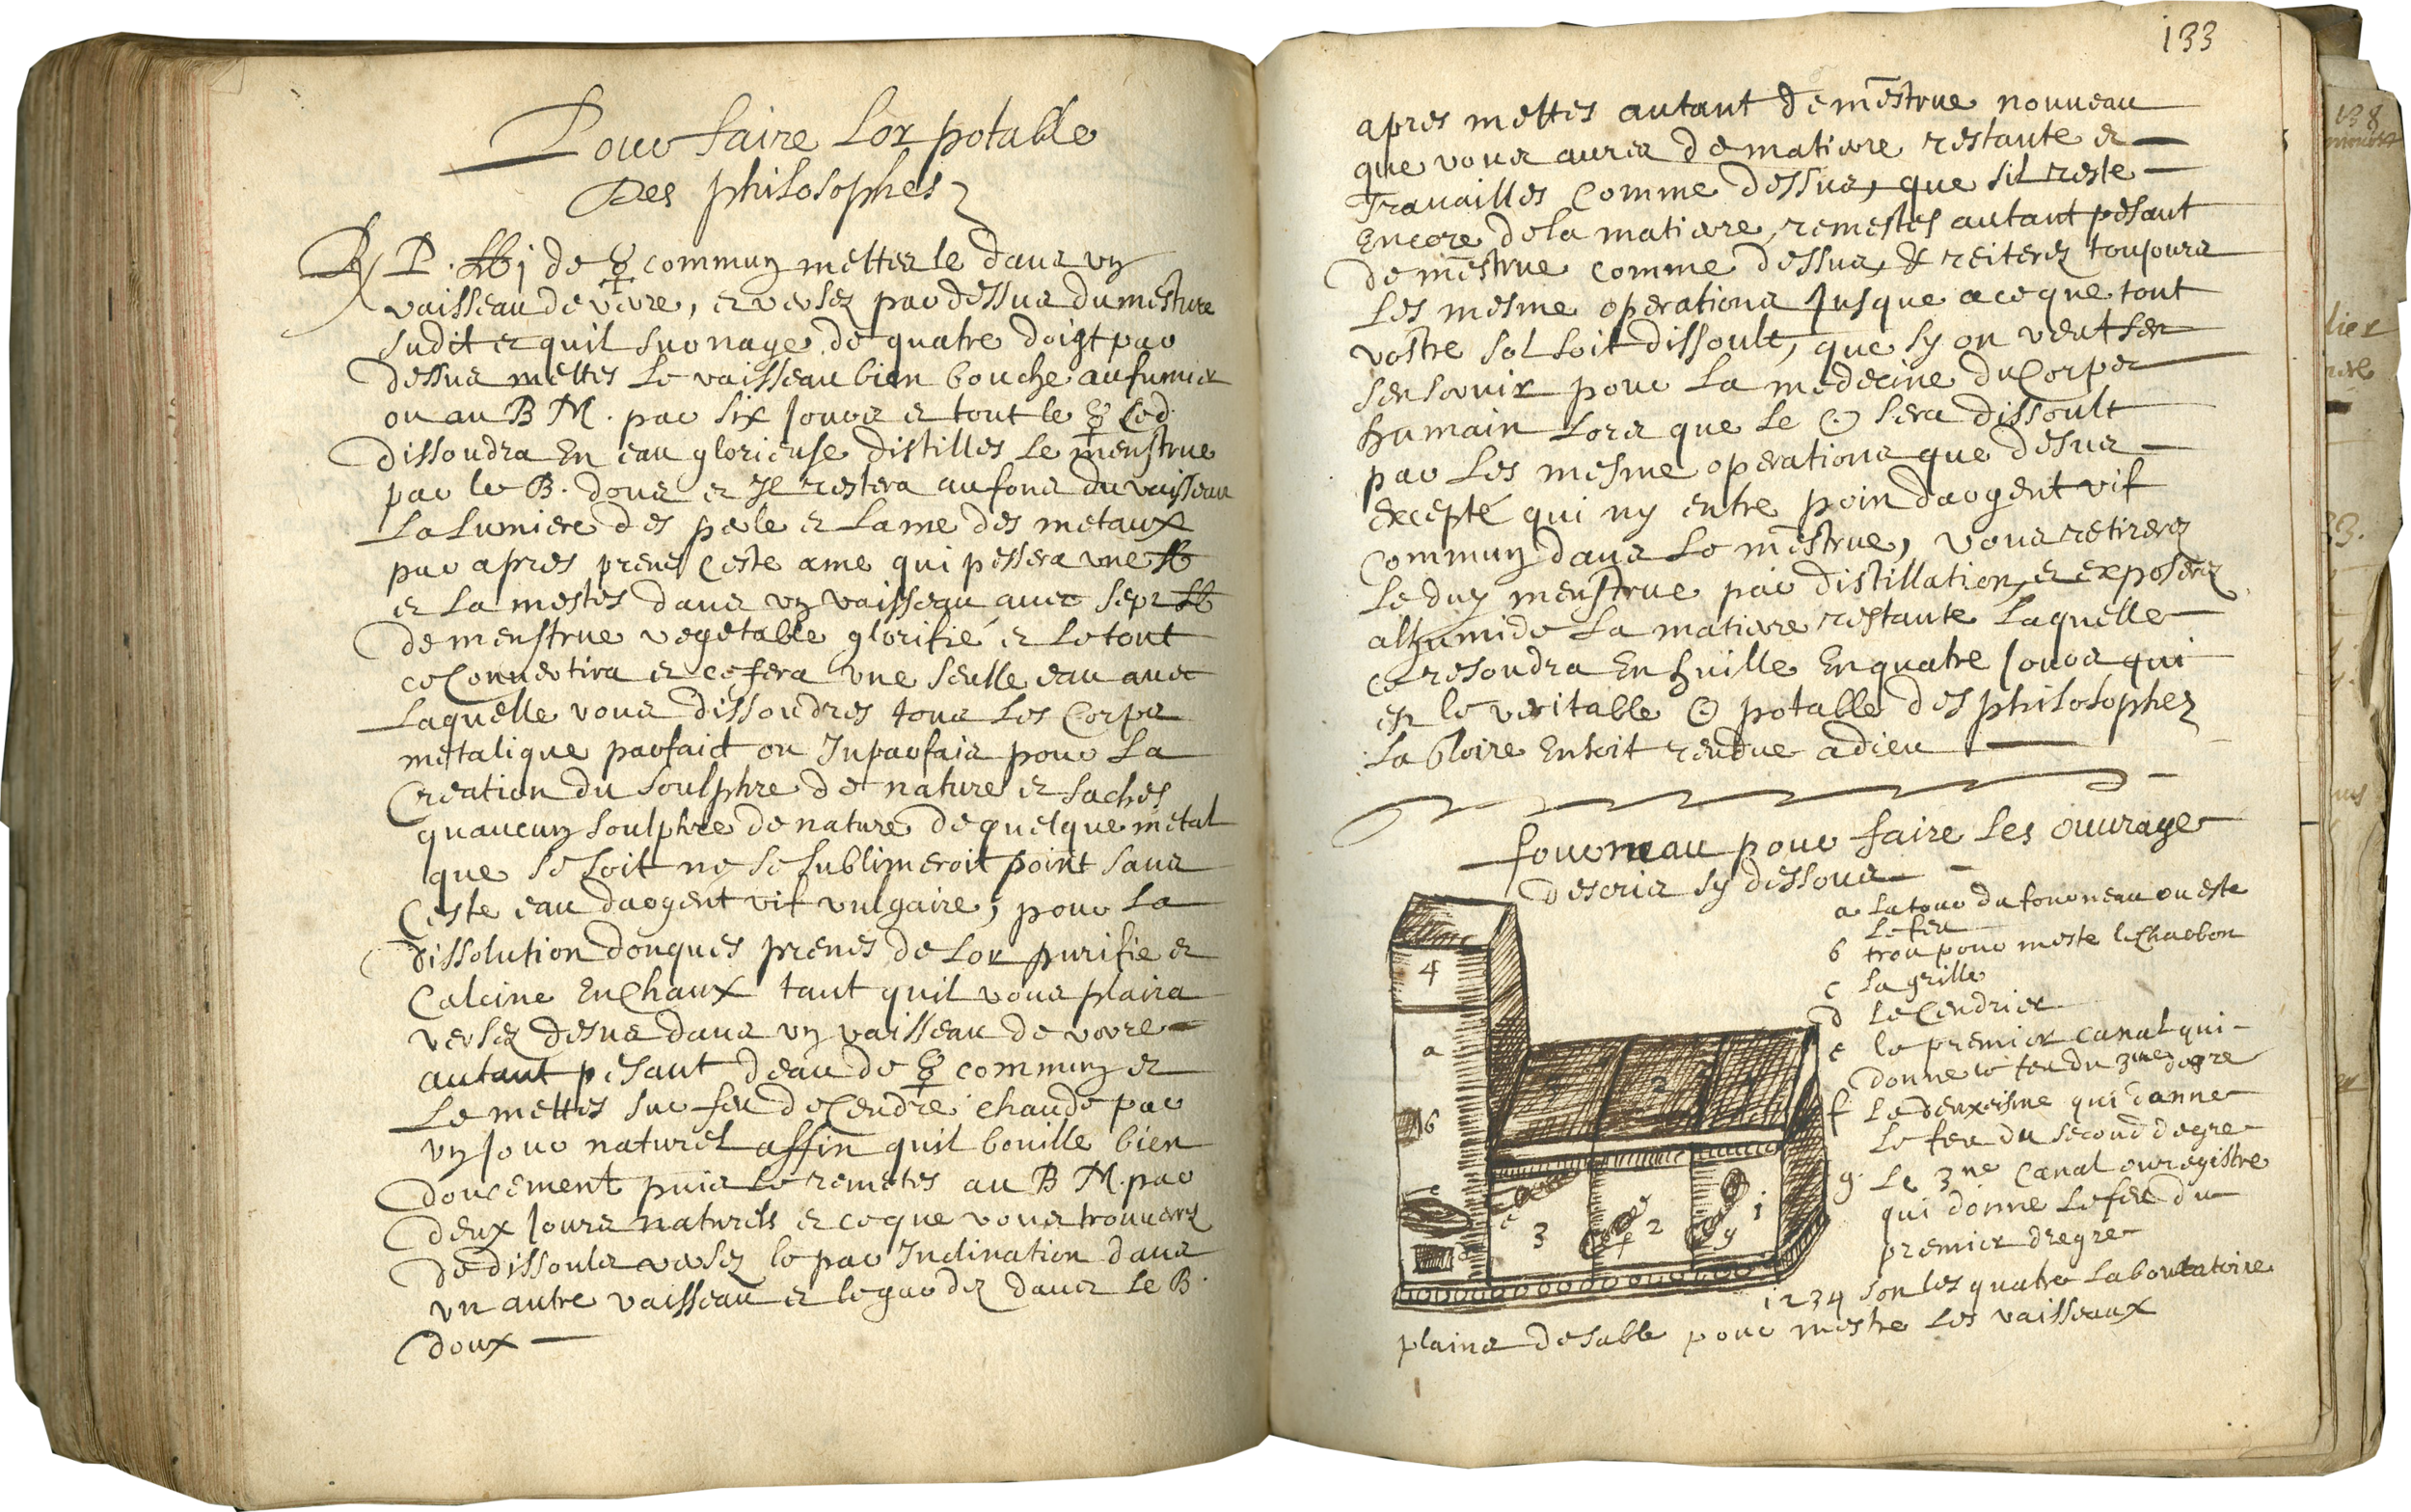 Pour faire Lor potable
Des philosophes
℞ P. ℔ j de ☿ commun mettes le dans un
vaisseau de verre, et versez par dessus du mestrue
sudit et quil surnage de quatre doigt par
dessus mettes le vaisseau bien bouche au fumier
ou au B M. par six jours et tout le ☿ ce d
dissoudra En eau glorieuse distilles le menstrue
par le B. dous et Il restera au fons du vaisseau
La Lumiere des perle et Lame des metaux
par apres prenes ceste ame qui pessera une ℔
et La mestes dans un vaisseau avec sept ℔
de menstrue vegetable glorifié et le tout
ce Convertira et ce fera une seulle eau avec
Laquelle vous dissoudres tous Les Corps
metalique parfaict ou Inparfais pour La
Creation du soulphre de nature et saches
quaucun soulphre de nature de quelque metal
que se soit ne se sublimeroit point sans
Ceste eau dargent vif vulgaire, pour La
dissolution donques prenes de Lor purifie et
Calcine En Chaux tant quil vous plaira
versez desus dans un vaisseau de verre
autant pesant deau de ☿ commun et
Le mettes sur feu de Cendre chaude par
un jour naturel affin quil bouille bien
doucement puis Le remetes au B M. par
deux jours naturels et ce que vous trouveres
de dissouls versez le par Inclination dans
un autre vaisseau et le gardez dans Le B.
doux
133
apres mettes autant de mestrue nouveau
que vous aures de matiere restante et
Travailles Comme dessus, que sil reste
Encore de la matiere, remestes autant pesant
de mestrue comme dessus, & reiterez toujours
Les mesme operations jusque a ce que tout
vostre sol soit dissoult, que sy on veut sen
sen servir pour La medecine du Corps
humain Lors que Le ☉ sera dissoult
par Les mesme operations que desus
Excepté qui ny entre poin dargent vif
Commun dans Le mestrue, vous retireres
Le dun menstrue par distillation, et exposerez
alhumide La matiere restante Laquelle
ce resoudra En huille En quatre jours qui
est le veritable ☉ potable des philosophes
La Gloire En soit rendue a dieu
fourneau pour faire Les ouvrages
descris sy dessous
a La tour du fourneau ou este
Le feu
b trou pour meste le Charbon
c La grille
d Le Cendrier
e le premier Canal qui
donne le feu du 3me degre
f Le deuxeisme qui donne
Le feu du second degre
g. Le 3me Canal ou registre
qui donne Le feu du
premier dregre
1 2 3 4 son les quatre Laboratoire
plains de sable pour mestre Les vaisseaux
4
a
b
c
d
e
3
f
2
g
1
3 2 1